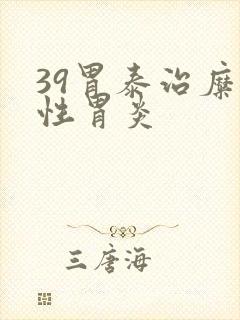 39胃泰治糜
性胃炎
三唐海